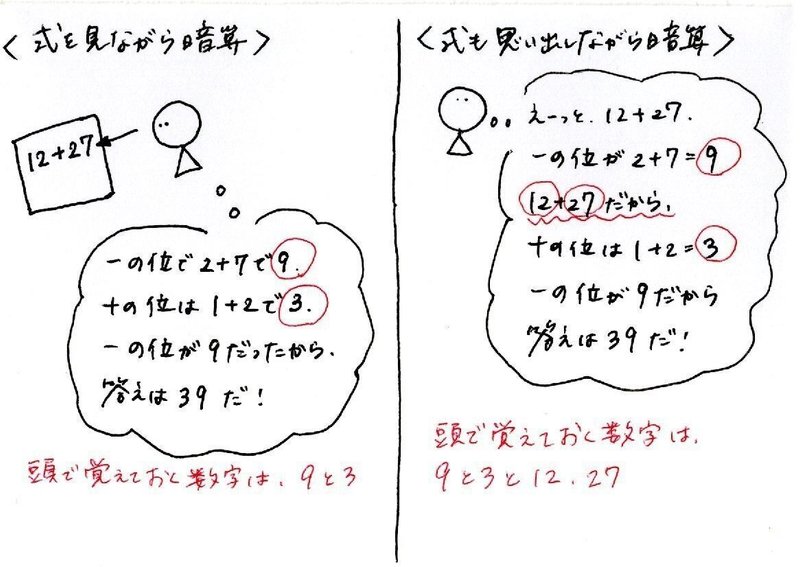 ＜式を見ながら暗算＞
12+27
一の位で2+7で9.
十の位は1+2で3.
一の位が9だったから、
答えは39だ！
頭で覚えておく数字は、9と3
＜式も思い出しながら暗算＞
えーっと、12+27.
一の位が2+7=9
12+27だから、
十の位は1+2=3
一の位が9だから
答えは39だ！
頭で覚えておく数字は、
9と3と12、27